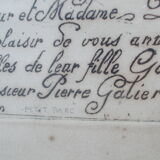 ur et Madame
laisir de vous ant
lles de leur fille G
sieur Pierre Galier
PETIT PARC